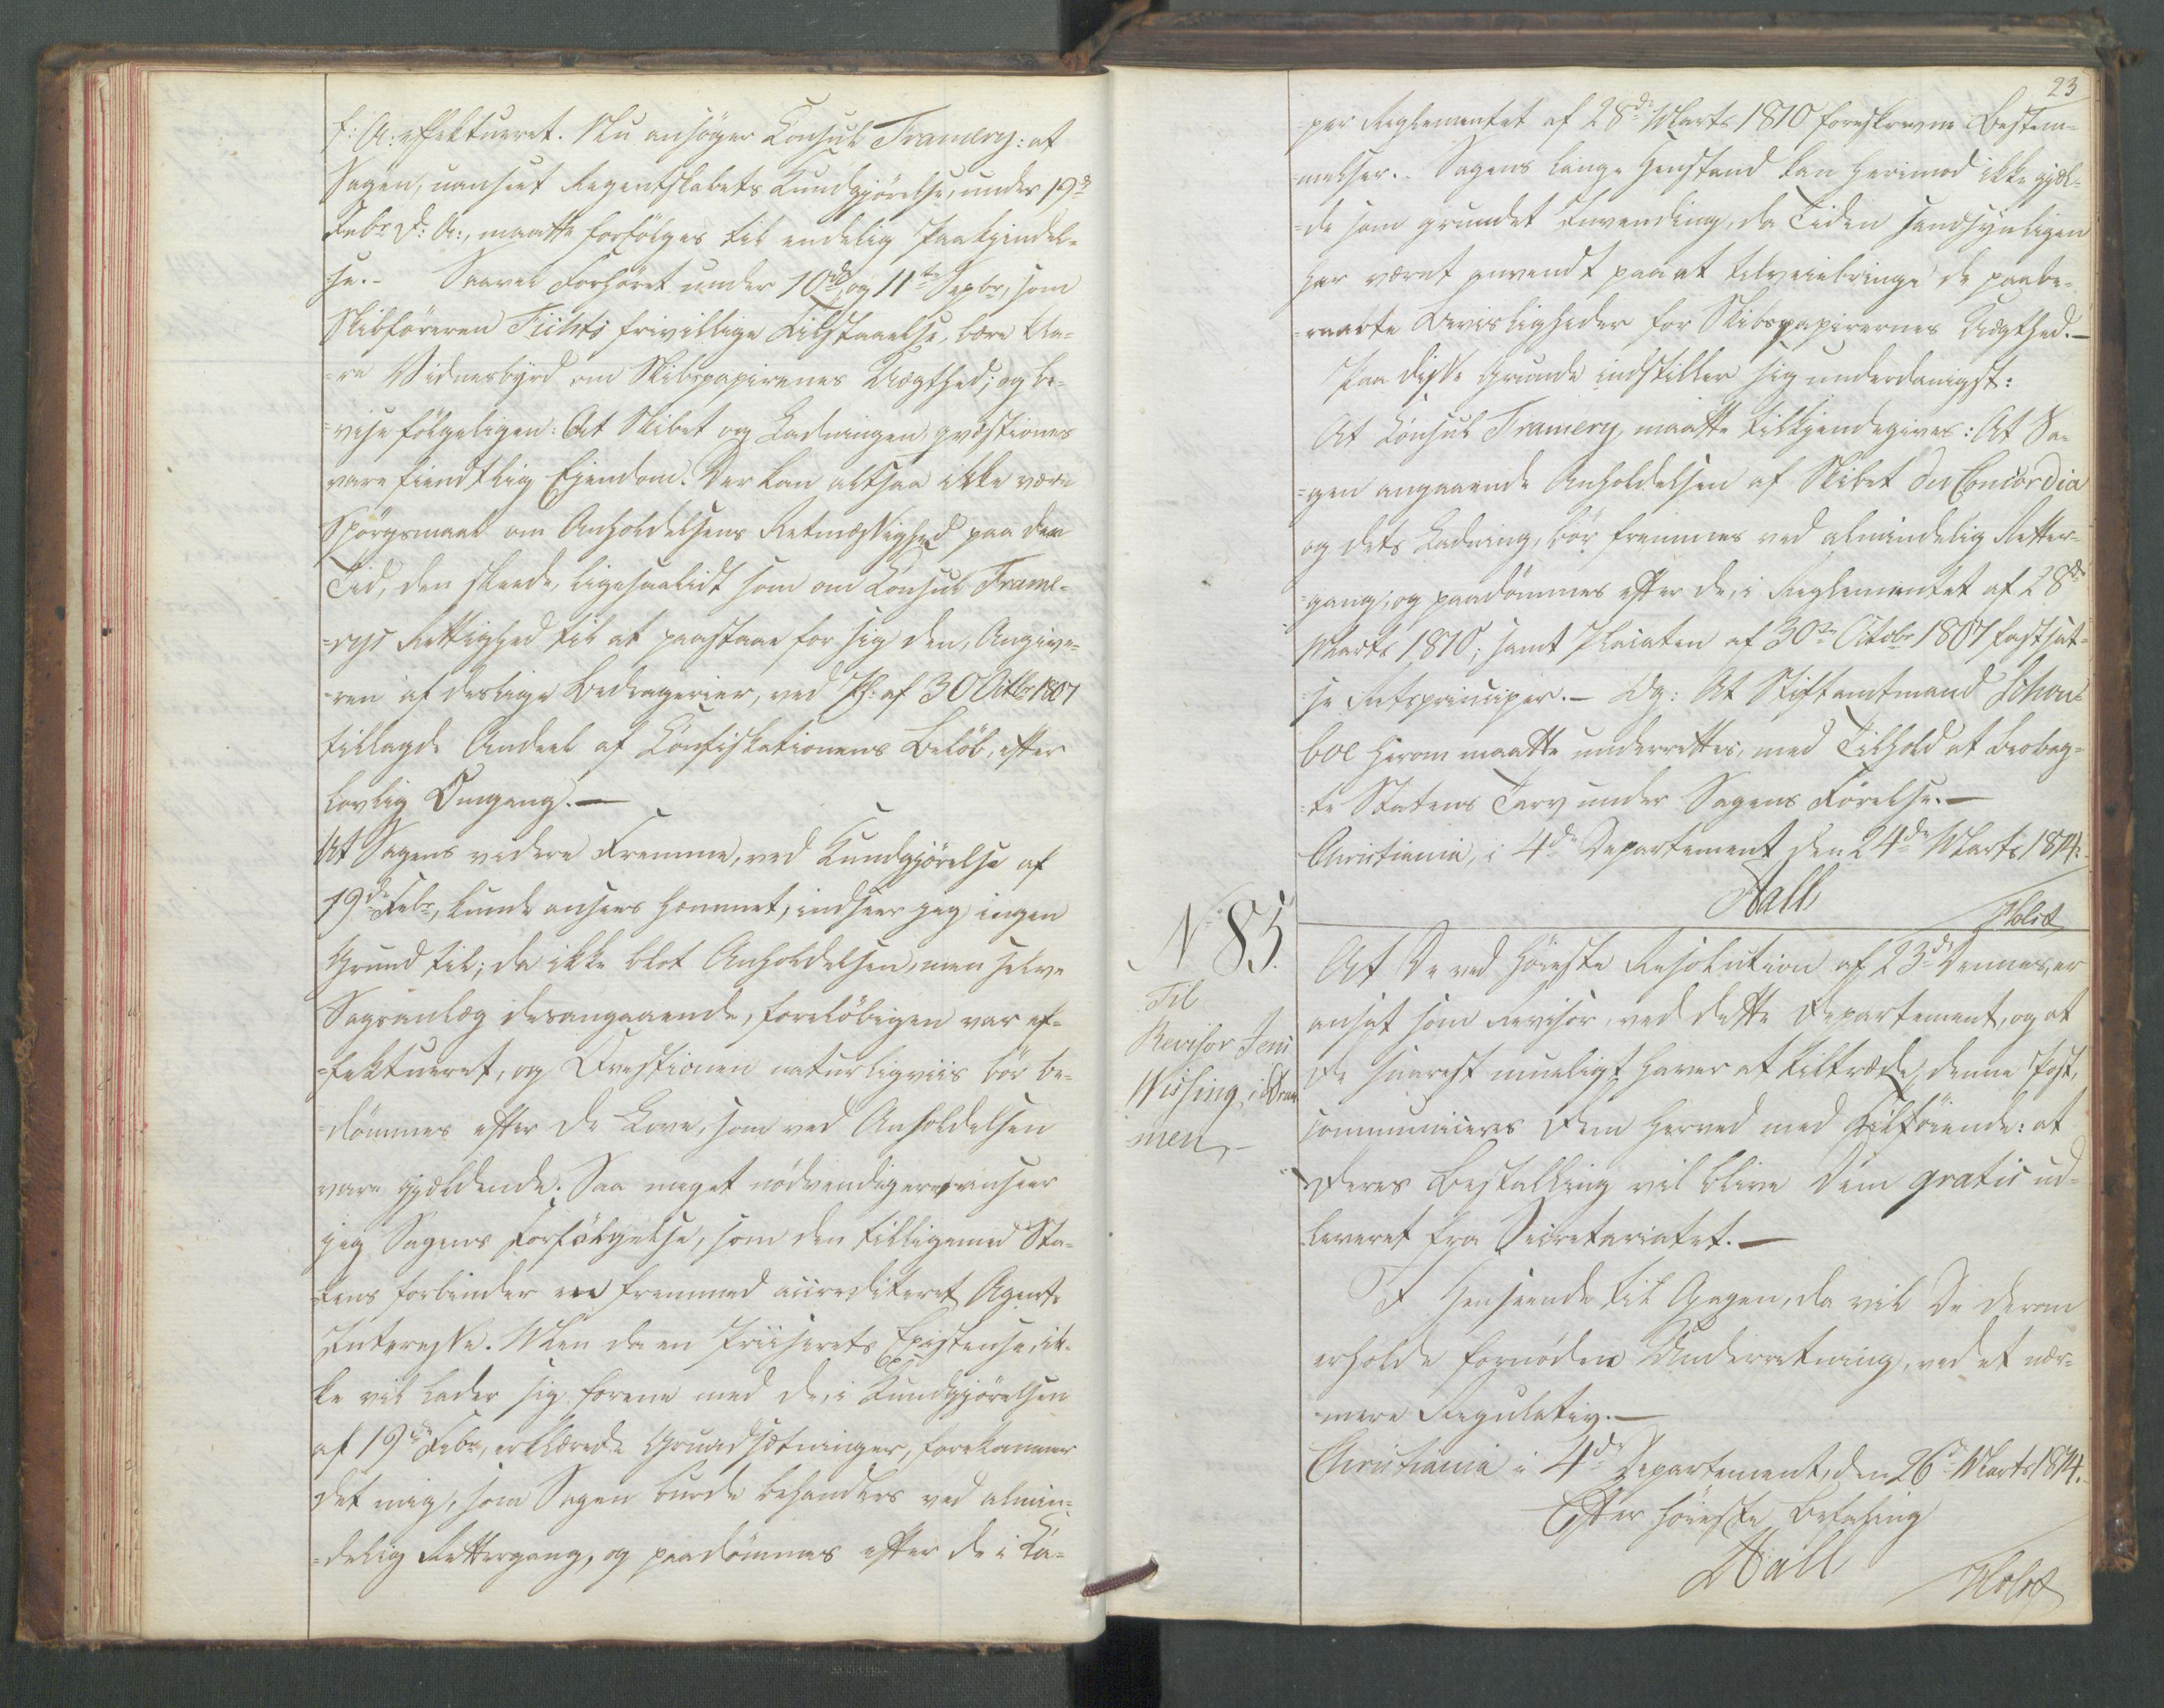 f: A: effektueret. Nu ansøger Consul Framery: at
Sagen, uanseet Regentskabets Kundgjørelse, under 19de
Febr d: A:, maatte forfølges til endelig Paakjendel-
se. - Saavel Forhøret under 10de og 11te Sepbr, som
Skibføreren Tüchts frivillige Tilstaaelse, bære kla-
re Vidnesbyrd om Skibspapirenes Uægthed; og be-
viise følgeligen: At Skibet og Ladningen qvæstiones
vare fiendtlig Ejendom. Der kan altsaa ikke være
Spørgsmaal om Anholdelsens Retmæssighed paa den
Tid, den skeede, ligesaalidt som om Consul Frame-
rys Rettighed til at paastaae for sig den, Angive-
ren af deslige Bedragerier, ved Pl: af 30 Octbr 1807
tillagde Andeel af Confiskationens Beløb, efter
lovlig Omgang. -
At Sagens videre Fremme, ved Kundgjørelse af
19de Febr, kunde ansees hæmmet, indseer jeg ingen
Grund til; da ikke blot Anholdelsen, men selve
Sagsanlæg desangaaende, foreløbigen var ef-
fektueret, og Qvestionen naturligviis bør be-
dømmes efter de Love, som ved Anholdelsen
vare gjældende. Saa meget nødvendigere anseer
jeg Sagens Forfølgelse, som den tilligemed Sta-
tens forbinder en fremmed accrediteret Agents
Interesse. Men da en Priiserets Existense, ik-
ke vil lader sig forene med de, i Kundgjørelsen
af 19de Febr, erklærede Grundsætninger, forekommer
det mig, som Sagen burde behandles ved almin-
delig Rettergang, og paadømmes efter de i Ca-
23
per Reglementet af 28de Marts 1810 foreskrevne Bestem-
melser. - Sagens lange Henstand kan herimod ikke gjæl-
de som grundet Indvending, da Tiden sandsynligen
har været anvendt paa at tilveiebringe de paabe-
raabte Beviisligheder for Skibspapirernes Uægthed. -
Paa disse Grunde indstiller sig underdanigst:
At Consul Framery, maatte tilkjendegives: At Sa-
gen angaaende Anholdelsen af Skibet die Concordia
og dets Ladning, bør fremmes ved almindelig Retter-
gang, og paadømmes efter de, i Reglementet af 28de
Marts 1810; samt Placaten af 30te Octobr 1807 fastsat-
te Retsprinciper. - Og: At Stiftamtmand Schou-
boe herom maatte underrettes, med Tilhold at beobag-
te Statens Tarv under Sagens Førelse. -
Christiania, i 4de Departement den 24de Marts 1814.
Aall
Holst
No 85.
Til
Revisor Jens
Wissing, i Dram-
men,
At De ved Høieste Resolution af 23de Dennes, er
ansat som Revisor, ved dette Departement, og at
De snarest mueligt haver at tiltræde denne Post,
communiceres Dem herved med Tilføiende: at
Deres Bestalling vil blive Dem gratis ud-
leveret fra Secretariatet. -
I Henseende til Gagen, da vil De derom
erholde fornøden Underretning, ved et nær-
mere Regulativ. -
Christiania i 4de Departement, den 26de Marts 1814.
Efter høieste Befaling
Aall
Holst